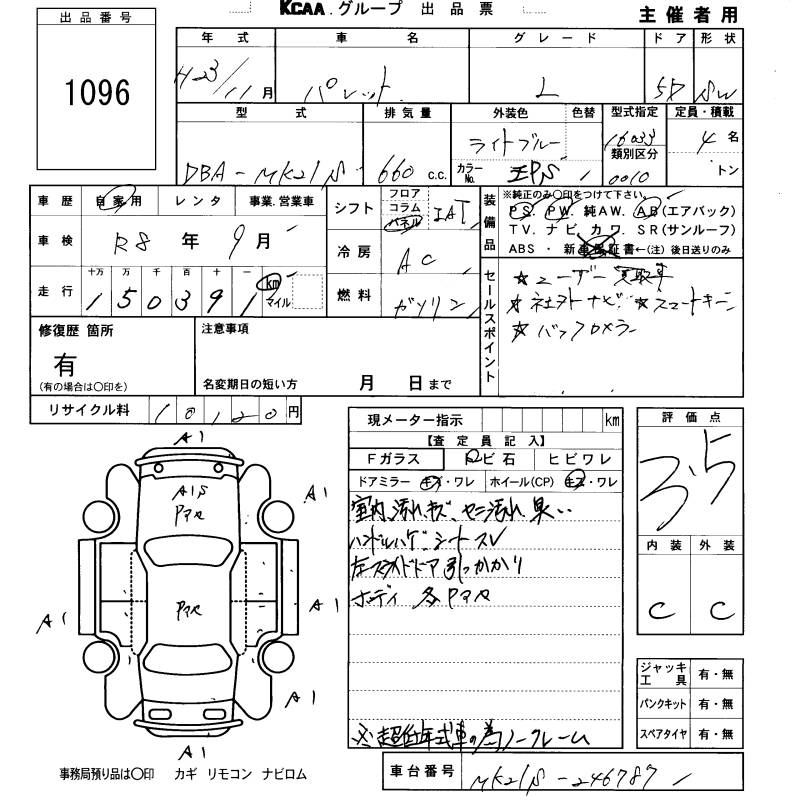 KCAA.グループ 出品票
主催者用
出品番号
1096
年式 車名 グレード ドア 形状
H23/11月 パレット L 5D SW
型式 排気量 外装色 色替 型式指定 定員・積載
DBA-MK21S 660 c.c. ライトブルー 16033 4名
カラーNo. 類別区分 0010 トン
車歴 自家用 レンタ 事業.営業車
シフト フロア コラム パネル IAT
装備品 ※純正のみ○印をつけて下さい。
PS. PW. 純AW. AB(エアバック)
TV. ナビ. カワ. SR(サンルーフ)
ABS・新車保証書←(注)後日送りのみ
車検 R8年9月
冷房 AC
走行 十万 万 千 百 十 一
150391 km マイル
燃料 ガソリン
セールスポイント
☆ユーザー買取車
☆社外ナビ ☆スマートキー
☆バックカメラ
修復歴 箇所
有
(有の場合は○印を)
注意事項
名変期日の短い方 月 日まで
リサイクル料 10120円
現メーター指示 km
【査定員記入】
Fガラス トビ石 ヒビワレ
ドアミラー キズ・ワレ ホイール(CP) キズ・ワレ
室内汚れキズ、セニ汚れ 臭い
ハンドルハゲ、シートスレ
左スライドドア引っかかり
ボディ 多
※超低年式車の為ノークレーム
評価点
3.5
内装 外装
C C
ジャッキ工具 有・無
パンクキット 有・無
スペアタイヤ 有・無
車台番号 MK21S-246787
A1
A1
A1S
A1
A1
A1
A1
A1
事務局預り品は○印 カギ リモコン ナビロム